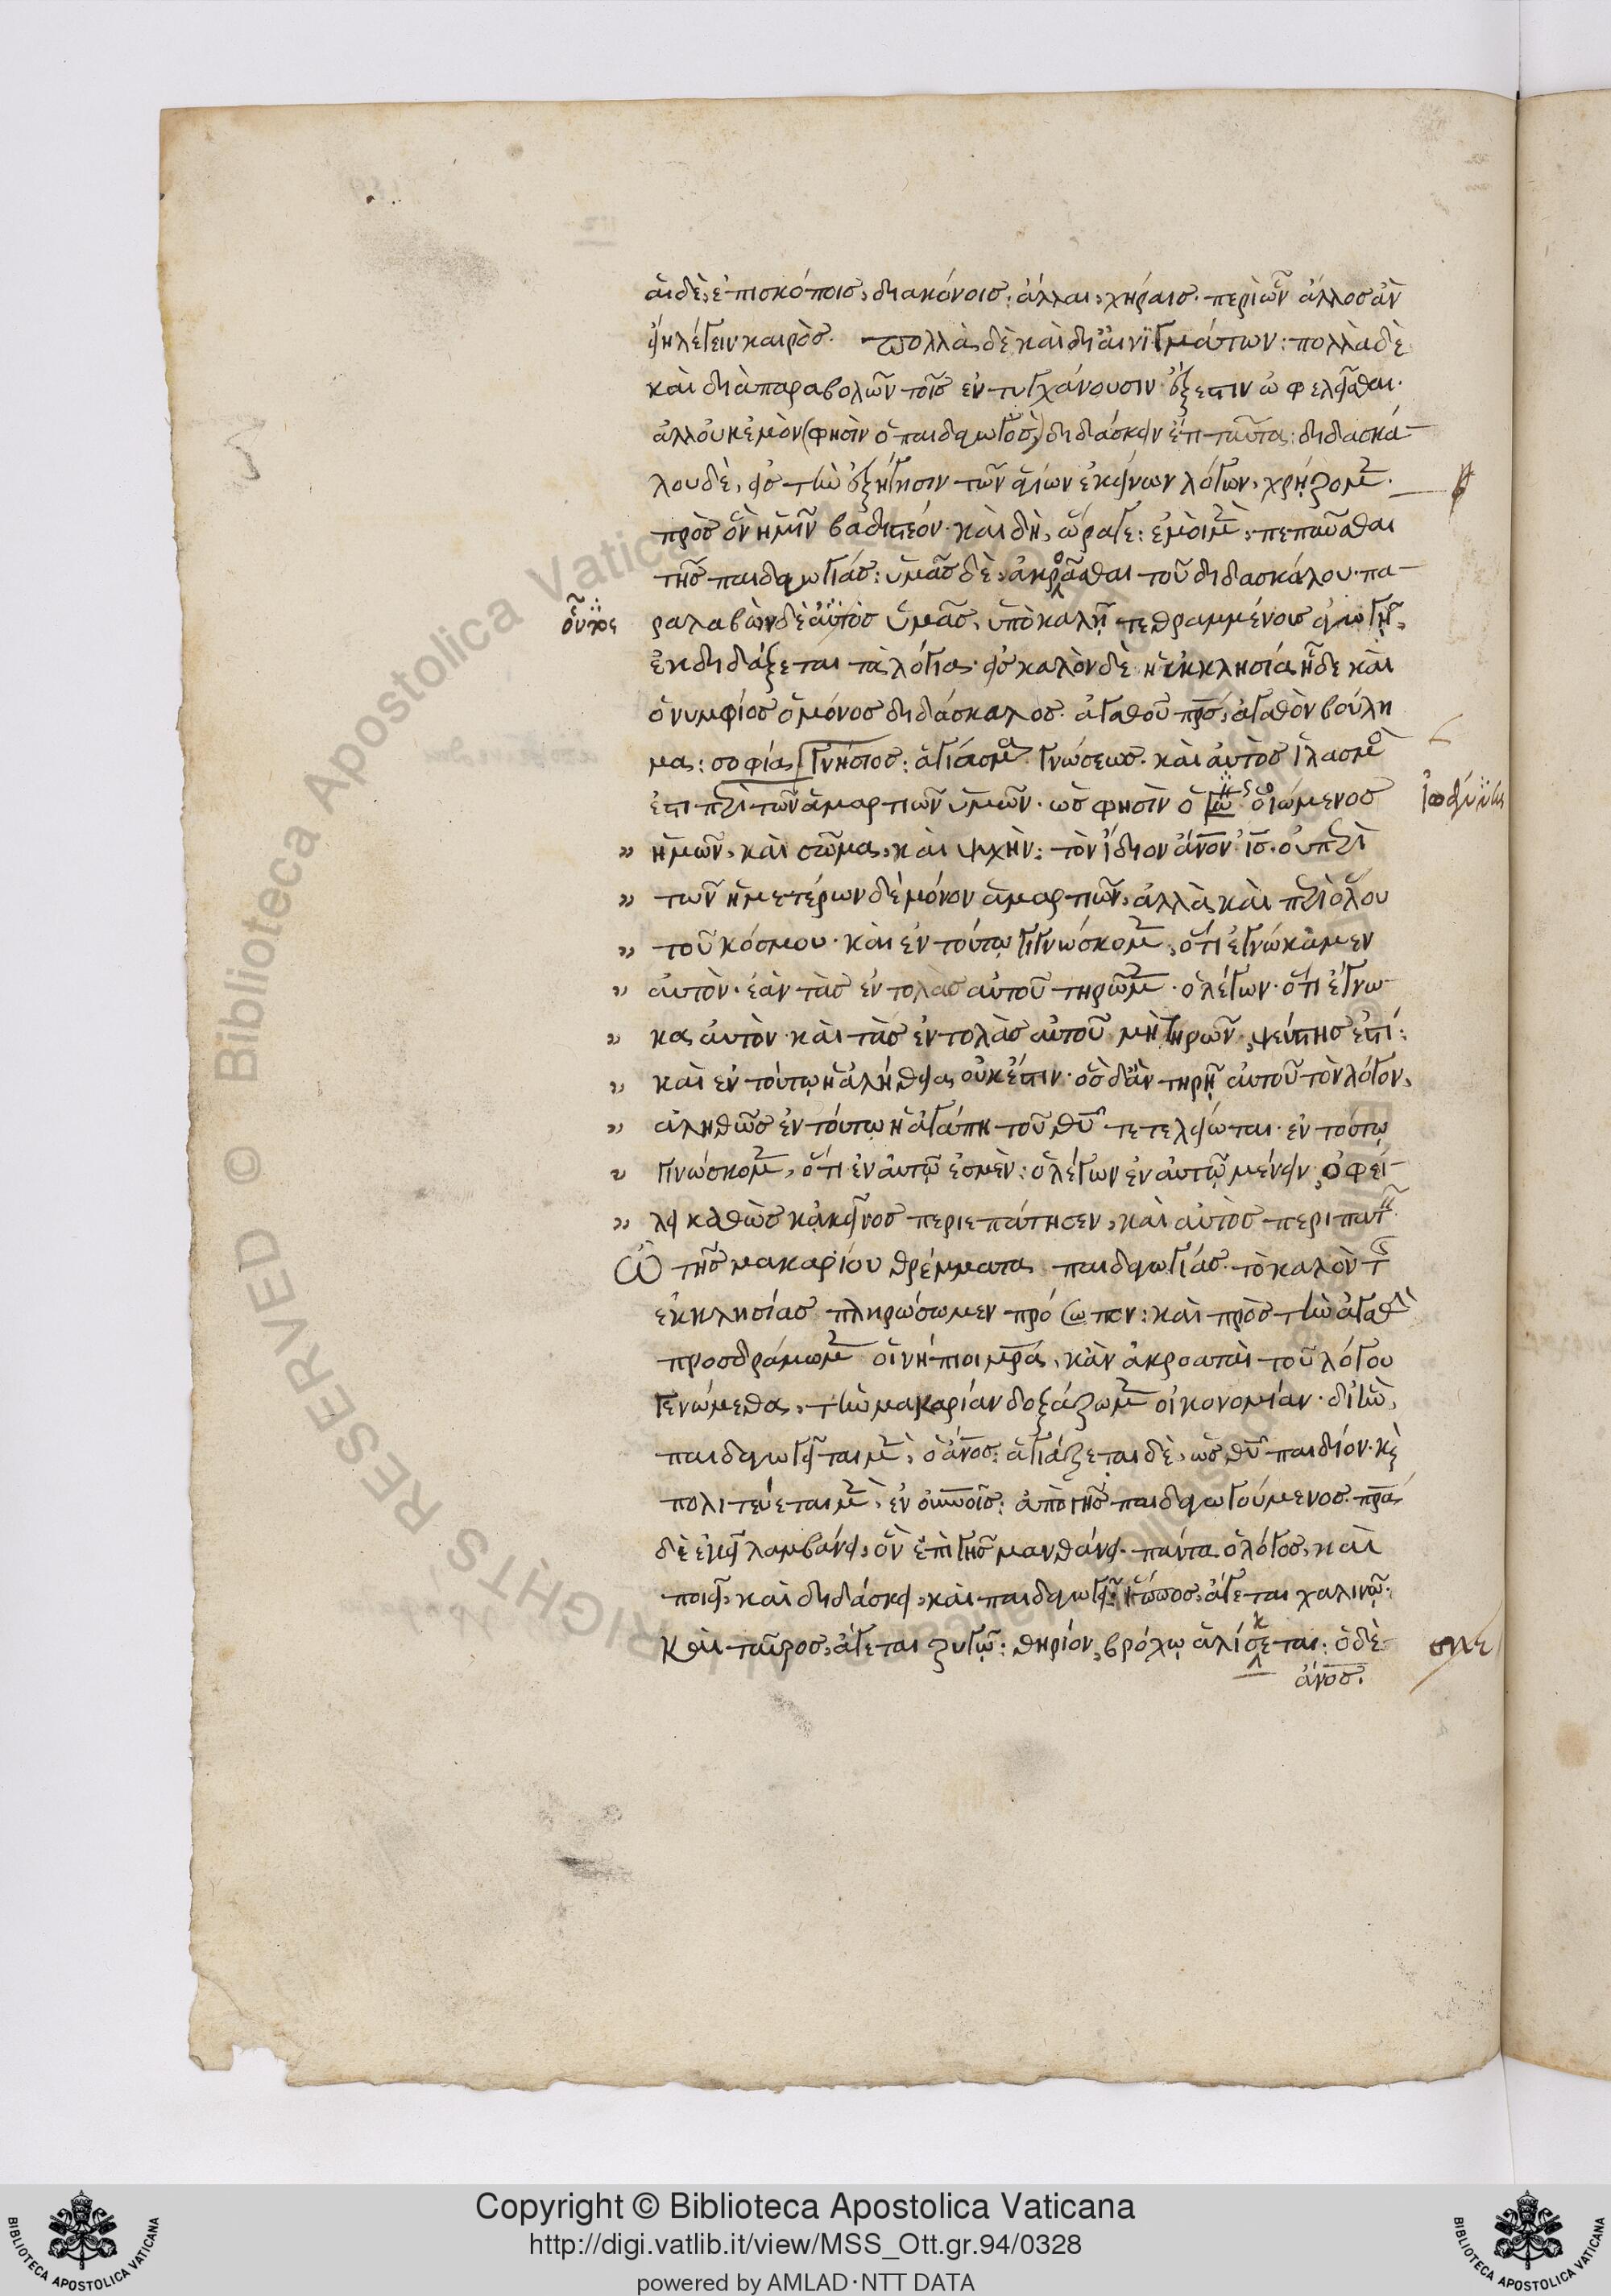 αἱ δὲ, ἐπισκόποις, διακόνοις: ἄλλαι, χήραις· περὶ ὧν ἄλλος ἂν
εἴη λέγειν καιρὸς. πολλὰ δὲ καὶ δι' αἰνϊγμάτων: πολλὰ δὲ
καὶ διὰ παραβολῶν τοῖς ἐντυγχάνουσιν ἔξεστιν ὠφελεῖσθαι·
ἀλλ' οὐκ ἐμὸν (φησὶν ὁ παιδαγωγὸς) διδάσκειν ἔτι ταῦτα: διδασκά-
λου δὲ, εἰς τὴν ἐξήγησιν τῶν ἁγίων ἐκείνων λόγων, χρῄζομ̅.
πρὸς ὃν ἡμῖν βαδιστέον· καὶ δὴ, ὥρα γε: ἐμοὶ μ̅, πεπαῦσθαι
τῆς παιδαγωγίας: ὑμᾶς δὲ, ἀκροᾶσθαι τοῦ διδασκάλου· πα-
οὗτος
ραλαβὼν δὲ αὐτὸς ὑμᾶς, ὑπὸ καλῇ τεθραμμένους ἀγωγῇ,
ἐκδιδάξεται τὰ λόγια· εἰς καλὸν δὲ ἡ ἐκκλησία ἥδε καὶ
ὁ νυμφίος ὁ μόνος διδάσκαλος· ἀγαθοῦ π̅ρ̅ς, ἀγαθὸν βούλη
μα: σοφία γνήσιος: ἁγίασμα γνώσεως· καὶ αὐτὸς ἱλασμὸ
ἐστι περὶ τῶν ἁμαρτιῶν ὑμῶν· ὥς φησὶν ὁ ἰω ὁ ἰώμενος
ἡμῶν, καὶ σῶμα, καὶ ψυχὴν: τὸν ἴδιον ἄ̅ν̅ο̅ν ι̅ς̅. οὐ περὶ
τῶν ἡμετέρων δὲ μόνον ἁμαρτιῶν, ἀλλὰ καὶ περὶ ὅλου
τοῦ κόσμου· καὶ ἐν τούτῳ γιγνώσκομ̅, ὅτι ἐγνώκαμεν
αὐτὸν· ἐὰν τὰς ἐντολὰς αὐτοῦ τηρῶμ̅· ὁ λέγων· ὅτι ἔγνω
κα αὐτὸν καὶ τὰς ἐντολὰς αὐτοῦ μὴ τηρῶν, ψεύστης ἐστί:
καὶ ἐν τούτῳ ἡ ἀλήθεια οὐκ ἔστιν· ὃς δ' ἂν τηρῇ αὐτοῦ τὸν λόγον,
ἀληθῶς ἐν τούτῳ ἡ ἀγάπη τοῦ θ̅υ̅ τετελείωται· ἐν τούτῳ
γινώσκομ̅, ὅτι ἐν αὐτῷ ἐσμὲν: ὁ λέγων ἐν αὐτῷ μένειν, ὀφεί-
λει καθὼς κἀκεῖνος περιεπάτησεν, καὶ αὐτὸς περιπατεῖν
Ὢ τῆς μακαρίου θρέμματα παιδαγωγίας· τὸ καλὸν τῆς
ἐκκλησίας πληρώσωμεν πρόσωπον: καὶ πρὸς τὴν ἀγαθὴν
προσδράμωμ̅ οἱ νήπιοι μ̅ρ̅α, κἂν ἀκροαταὶ τοῦ λόγου
γενώμεθα, τὴν μακαρίαν δοξάζωμ̅ οἰκονομίαν· δι' ἣν,
παιδαγωγεῖται μ̅, ὁ ἄ̅ν̅ο̅ς̅: ἁγιάζεται δὲ, ὡς θ̅υ̅ παιδίον· κὶ
πολιτεύεται μ̅, ἐν ο̅υ̅ν̅οῖς: ἀπὸ γῆς παιδαγωγούμενος. π̅ρ̅α
δὲ ἐκεῖ λαμβάνει, ὃν ἐπὶ γῆς μανθάνει· πάντα ὁ λόγος, καὶ
ποιεῖ, καὶ διδάσκει, καὶ παιδαγωγεῖ: ἵππος, ἄγεται χαλινῷ:
καὶ ταῦρος, ἄγεται ζυγῷ: θηρίον, βρόχῳ ἁλίσκεται: ὁ δὲ
ἄ̅ν̅ο̅ς̅.
Copyright © Biblioteca Apostolica Vaticana
http://digi.vatlib.it/view/MSS_Ott.gr.94/0328
powered by AMLAD·NTT DATA
BIBLIOTECA APOSTOLICA VATICANA
BIBLIOTECA APOSTOLICA VATICANA